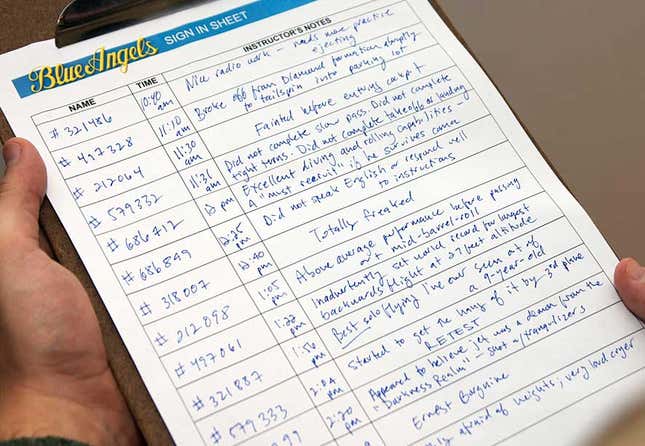 Blue Angels SIGN IN SHEET
NAME TIME INSTRUCTOR'S NOTES
# 321486 10:40 am Nice radio work – needs more practice
ejecting
# 497328 11:10 am Broke off from Diamond formation abruptly
to tailspin into parking lot
# 212064 11:30 am Fainted before entering cockpit
# 579332 11:36 am Did not complete slow pass. Did not complete
tight turns. Did not complete takeoff or landing
# 686412 12 pm Excellent diving and rolling capabilities –
A "must recruit" if he survives coma
# 686849 12:25 pm Did not speak English or respond well
to instructions
# 318007 12:40 pm Totally freaked
# 212098 1:05 pm Above average performance before passing
out mid-barrel-roll
# 497061 1:22 pm Inadvertently set world record for longest
backwards flight at 27 feet altitude
# 321887 1:56 pm Best solo flying I've ever seen out of
a 9-year-old
# 579333 2:04 pm Started to get the hang of it by 3rd plane
RETEST
299 2:20 pm Appeared to believe jet was a demon from the
"Darkness Realm" – shot w/tranquilizers
Ernest Borgnine
afraid of heights; very loud cryer